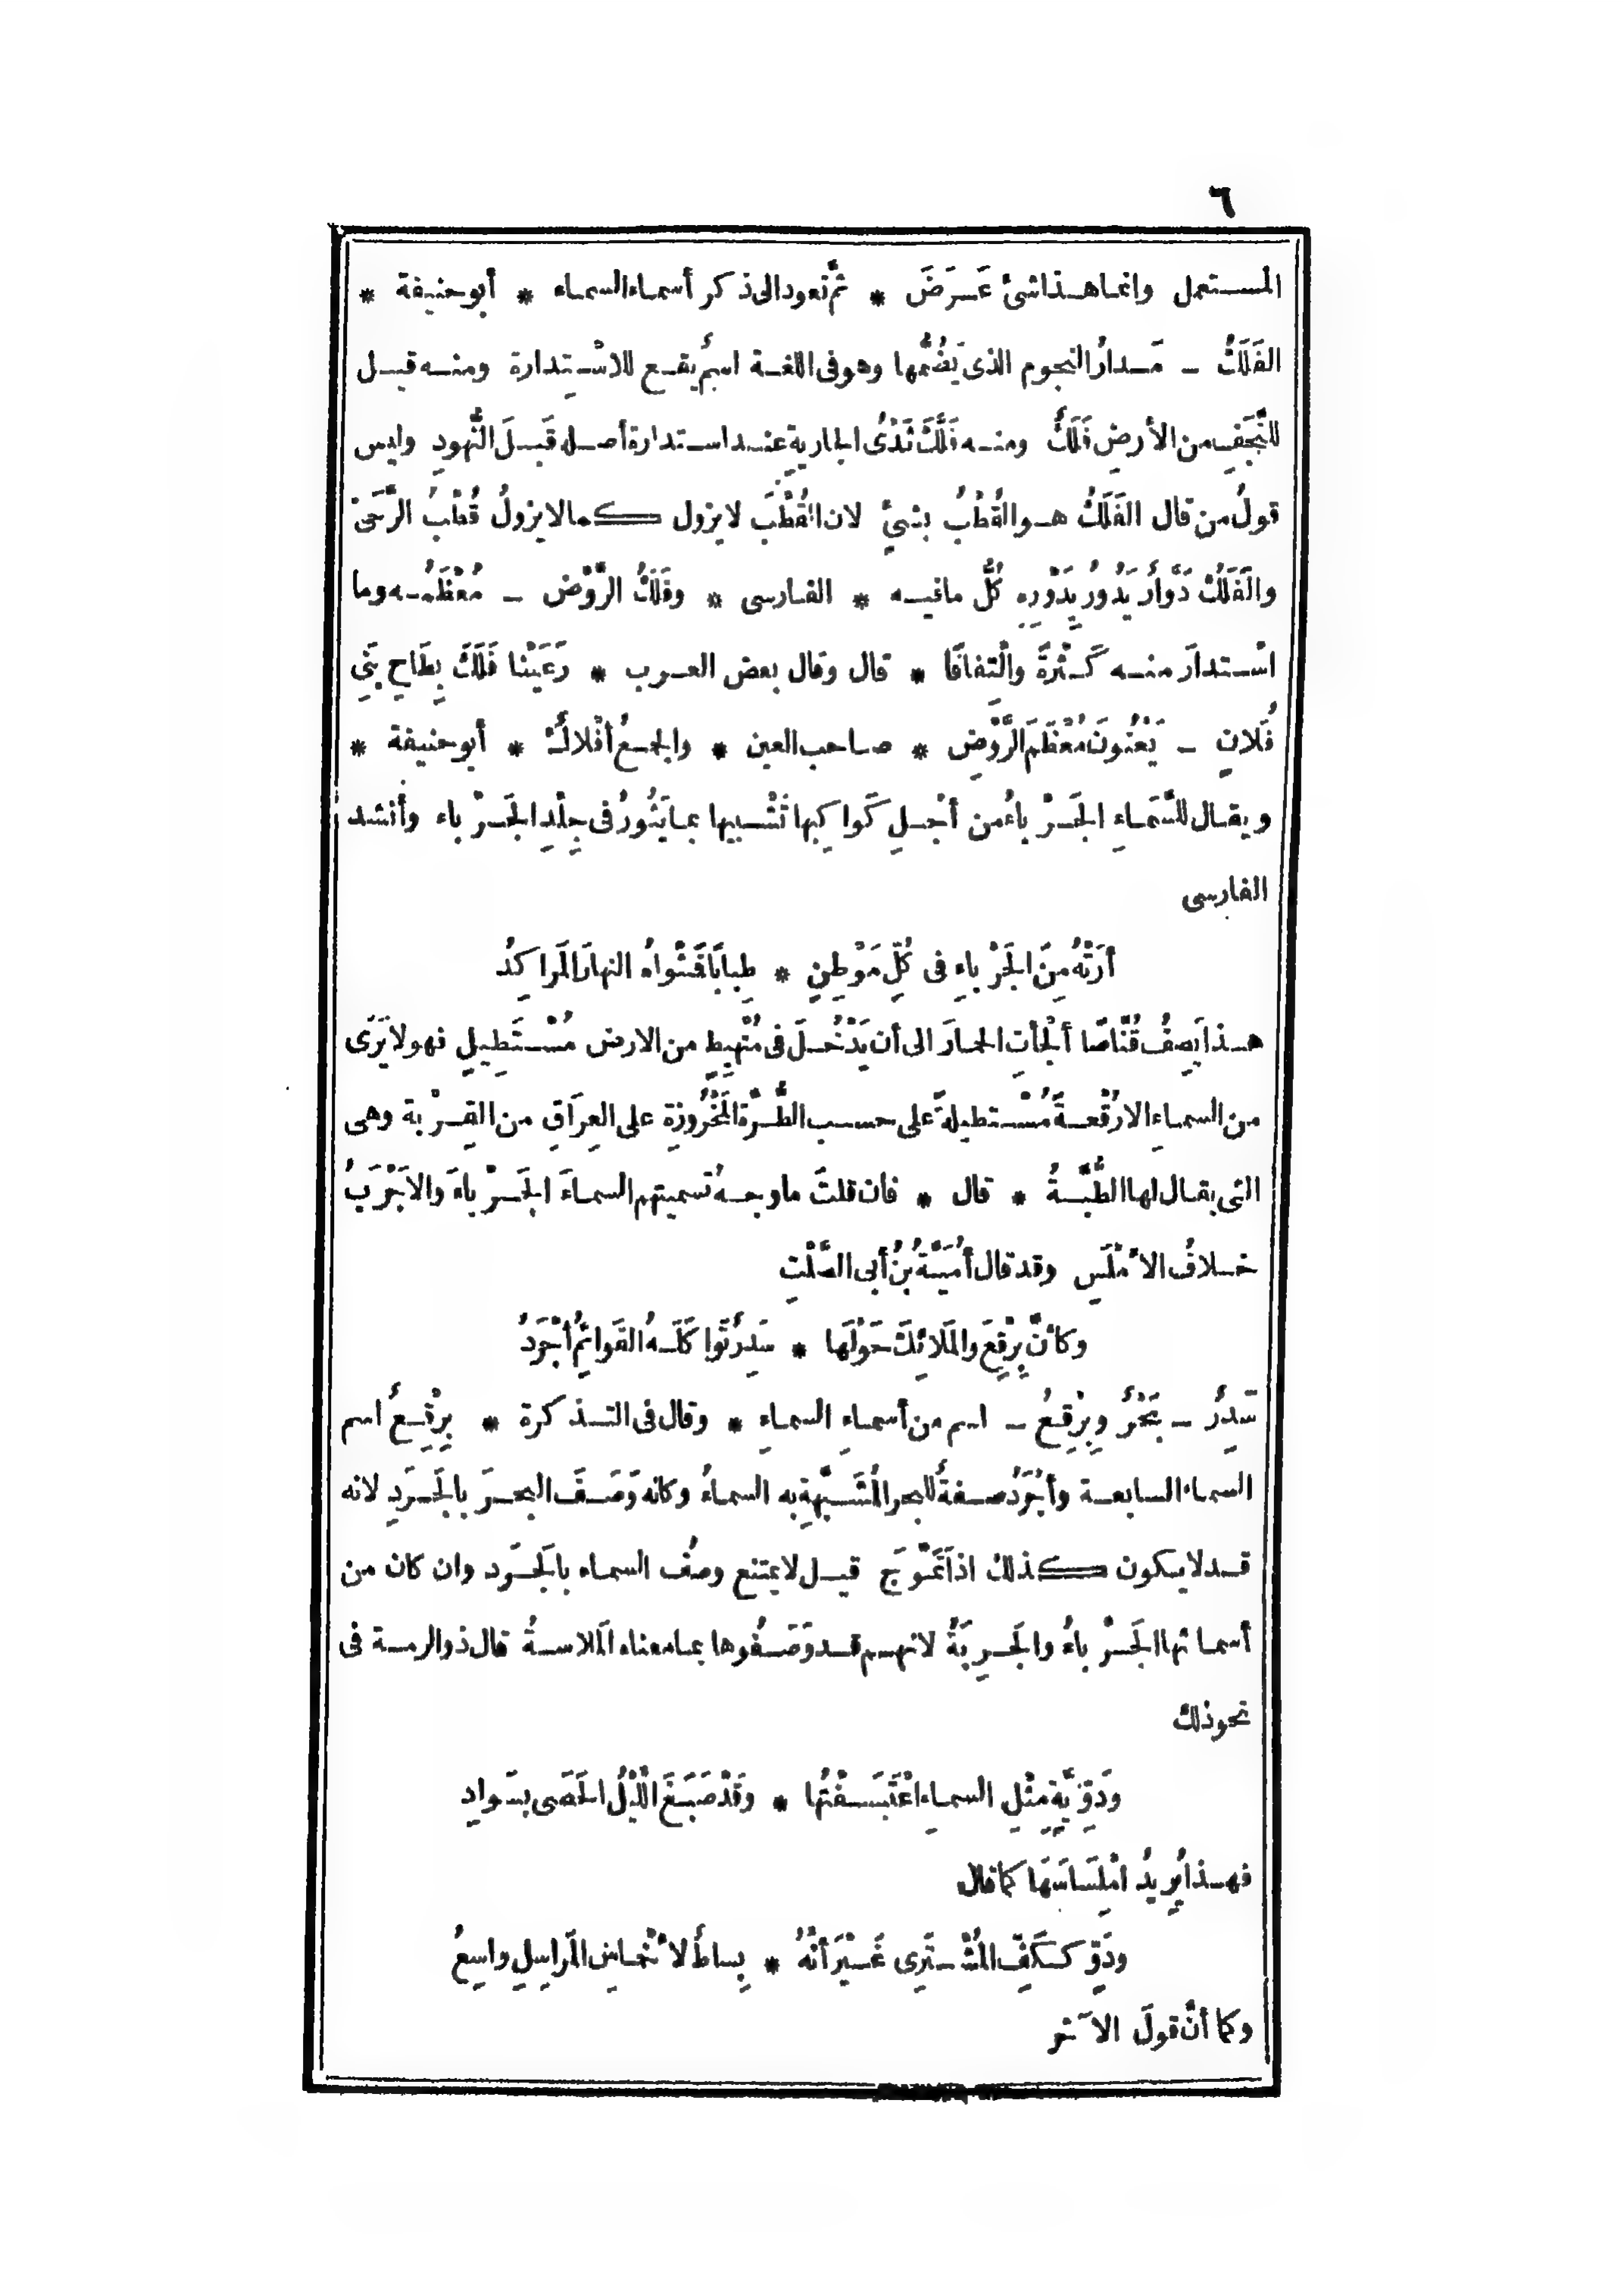 ٦
المستعمل وانما هذا شئ عَرَضَ * ثُمَّ نعود الى ذكر أسماء السماء * أبو حنيفة *
الفَلَكُ - مَدارُ النجوم الذى يَضُمُّها وهو فى اللغة اسمٌ يقع للاسْتِدارة ومنه قيل
للنَّجَفِ من الأرضِ فَلَكٌ ومنه فَلَّكَ ثَدْىُ الجاريةِ عند استدارة أصله قَبلَ النُّهودِ وليس
قولُ من قال الفَلَكُ هو القُطْبُ بشىءٍ لان القُطْبَ لا يزول كما لا يزولُ قُطْبُ الرَّحَى
والفَلَكُ دَوَّارٌ يَدُورُ بِدَوْرِهِ كُلُّ ما فيه * الفارسى * وفَلَكُ الرَّوْض - مُعْظَمُه وما
اسْتدارَ منه كَثْرةً والْتِفافًا * قال وقال بعض العرب * رَعَيْنا فَلَكَ بِطَاحِ بَنِى
فُلَانٍ - يَعْنُونَ مُعْظَمَ الرَّوْضِ * صاحب العين * والجمعُ أفْلاكٌ * أبو حنيفة *
ويقال للسَّمَاءِ الجَرْباءُ من أجْلِ كَواكِبها تَشْبيها بما يَثُورُ فى جِلْدِ الجَرْباء وأنشد
الفارسى
أرَتْهُ مِنَ الجَرْباءِ فى كُلِّ مَوْطِنٍ * طِبابًا فَمَثْواهُ النهارَ المَراكِدُ
هذا يَصِفُ قُنَّاصًا ألْجأتِ الحمارَ الى أن يَدْخُلَ فى مُنْهَبِطٍ من الارض مُسْتَطِيلٍ فهو لا يَرَى
من السماءِ الا رُقْعةً مُسْتطيلةً على حسب الطُّرَّة المَخْرُوزةِ على العِرَاقِ من القِرْبة وهى
التى يقال لها الطُّبَّةُ * قال * فان قلتَ ما وجهُ تسميتهم السماءَ الجَرْباءَ والاجْرَبُ
خلافُ الأمْلَسِ وقد قال أُمَيَّةُ بنُ أبى الصَّلْتِ
وكأنَّ بِرْقِعَ والمَلائِكَ حَوْلَها * سَدِرٌ تَواكَلَهُ القَوائمُ أجْرَدُ
سَدِرٌ - بَحْرٌ وبِرْقِعُ - اسم من أسماءِ السماءِ * وقال فى التذكرة * بِرْقِعُ اسم
السماء السابعة وأجْرَدُ صفةٌ للبحر المُشَبَّهةِ به السماءُ وكانه وَصَفَ البحرَ بالجَرَدِ لانه
قد لا يكون كذلك اذا تَمَوَّجَ قيل لا يمتنع وصْفُ السماء بالجَرَد وان كان من
أسمائها الجَرْباءُ والجَرِبَةُ لانهم قد وَصَفُوها بما معناه المَلاسةُ قال ذو الرمة فى
نحو ذلك
ودَوِّيَّةٍ مِثْلِ السماءِ اعْتَسَفْتُها * وقَدْ صَبَغَ اللَّيْلُ الحَصَى بسَوادِ
فهذا يُرِيدُ امْلِسَاسَهَا كما قال
ودَوٍّ كَكَفِّ المُشْتَرِى غَيْرَ أنَّهُ * بِساطٌ لأخْماسِ المَراسِلِ واسِعُ
وكما أنَّ قولَ الآخر